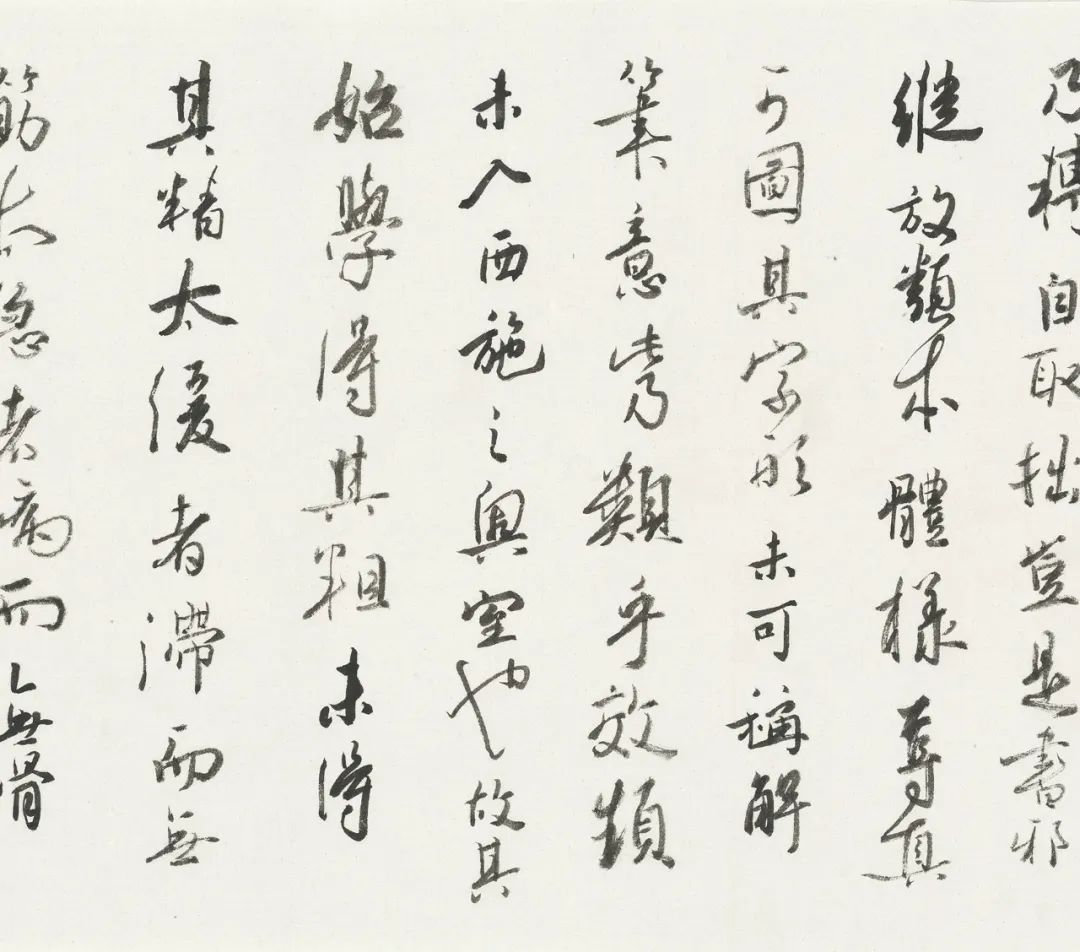 乃摶自取拙豈是書邪
縱放類本體樣奪真
可圖其字形未可稱解
筆意此乃類乎效頻
未入西施之奧室也故其
始學得其粗未得
其精太緩者滯而無
筋太急者病而無骨